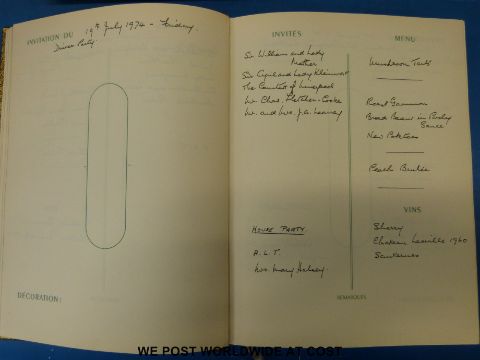 INVITATION DU 19th July 1974 - Friday
Dinner Party
DÉCORATION:
INVITÉS
Sir William and Lady
Mather
Sir Cyril and Lady Kleinwort
The Countess of Liverpool
Mr. Chas. Fletcher-Cooke
Mr. and Mrs. J.G.
HOUSE PARTY
A.L.T.
Mrs. Mary Halsey
REMARQUES
MENU
Mushroom Tarts
Roast Gammon
Broad Beans in Parsley
Sauce
New Potatoes
Peach Brulée
VINS
Sherry
Chateau Leoville 1960
Sauternes
WE POST WORLDWIDE AT COST